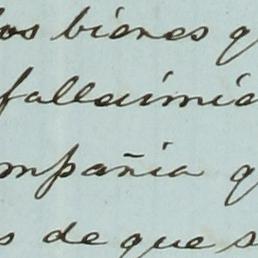 los bienes q
fallecimie
ompañia q
s de que s